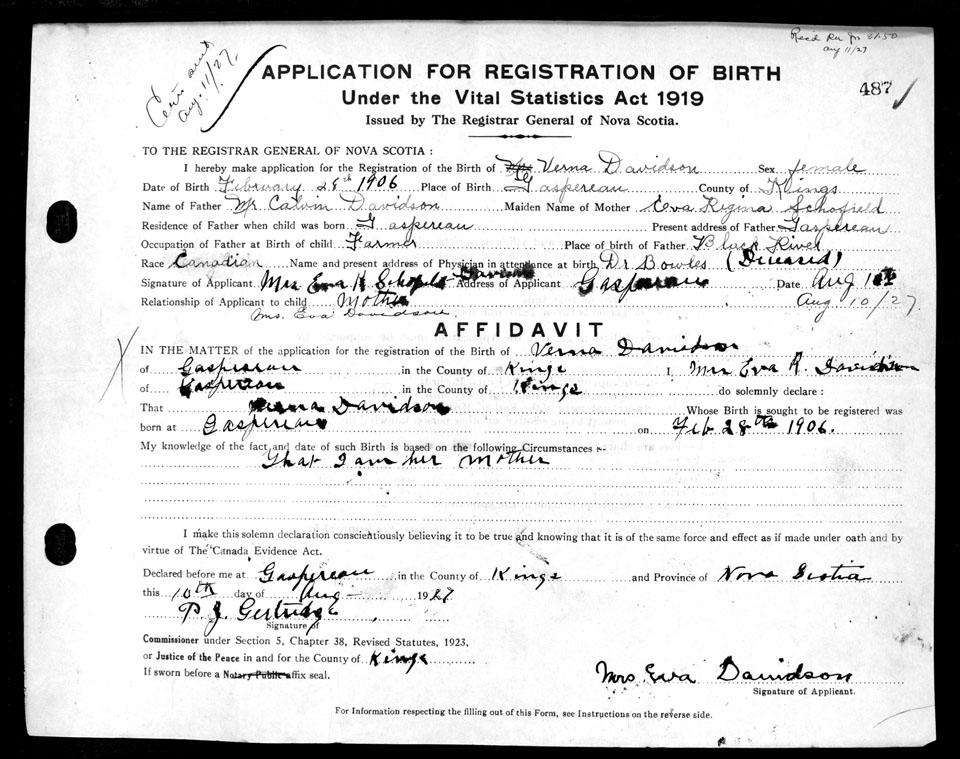 Recd Aug 11/27
Cert sent
Aug. 11/27
487
APPLICATION FOR REGISTRATION OF BIRTH
Under the Vital Statistics Act 1919
Issued by The Registrar General of Nova Scotia.
TO THE REGISTRAR GENERAL OF NOVA SCOTIA :
I hereby make application for the Registration of the Birth of Verna Davidson Sex female
Date of Birth February 28th 1906 Place of Birth Gaspereau County of Kings
Name of Father Mr Calvin Davidson Maiden Name of Mother Eva Regina Schofield
Residence of Father when child was born Gaspereau Present address of Father Gaspereau
Occupation of Father at Birth of child Farmer Place of birth of Father Black River
Race Canadian Name and present address of Physician in attendance at birth Dr Bowles (Deceased)
Signature of Applicant Mrs Eva Davidson Address of Applicant Gaspereau Date Aug
Relationship of Applicant to child Mother Aug 10/27
Mrs. Eva Davidson.
AFFIDAVIT
IN THE MATTER of the application for the registration of the Birth of Verna Davidson
of Gaspereau in the County of Kings I, Mrs Eva R. Davidson
of Gaspereau in the County of Kings do solemnly declare :
That Verna Davidson Whose Birth is sought to be registered was
born at Gaspereau on Feb 28th 1906.
My knowledge of the fact and date of such Birth is based on the following Circumstances :-
That I am her mother
I make this solemn declaration conscientiously believing it to be true and knowing that it is of the same force and effect as if made under oath and by
virtue of The Canada Evidence Act.
Declared before me at Gaspereau in the County of Kings and Province of Nova Scotia
this 10th day of Aug 1927
P. J. Gertridge
Signature of
Commissioner under Section 5, Chapter 38, Revised Statutes, 1923,
or Justice of the Peace in and for the County of Kings
If sworn before a Notary Public affix seal.
Mrs. Eva Davidson
Signature of Applicant.
For Information respecting the filling out of this Form, see Instructions on the reverse side.